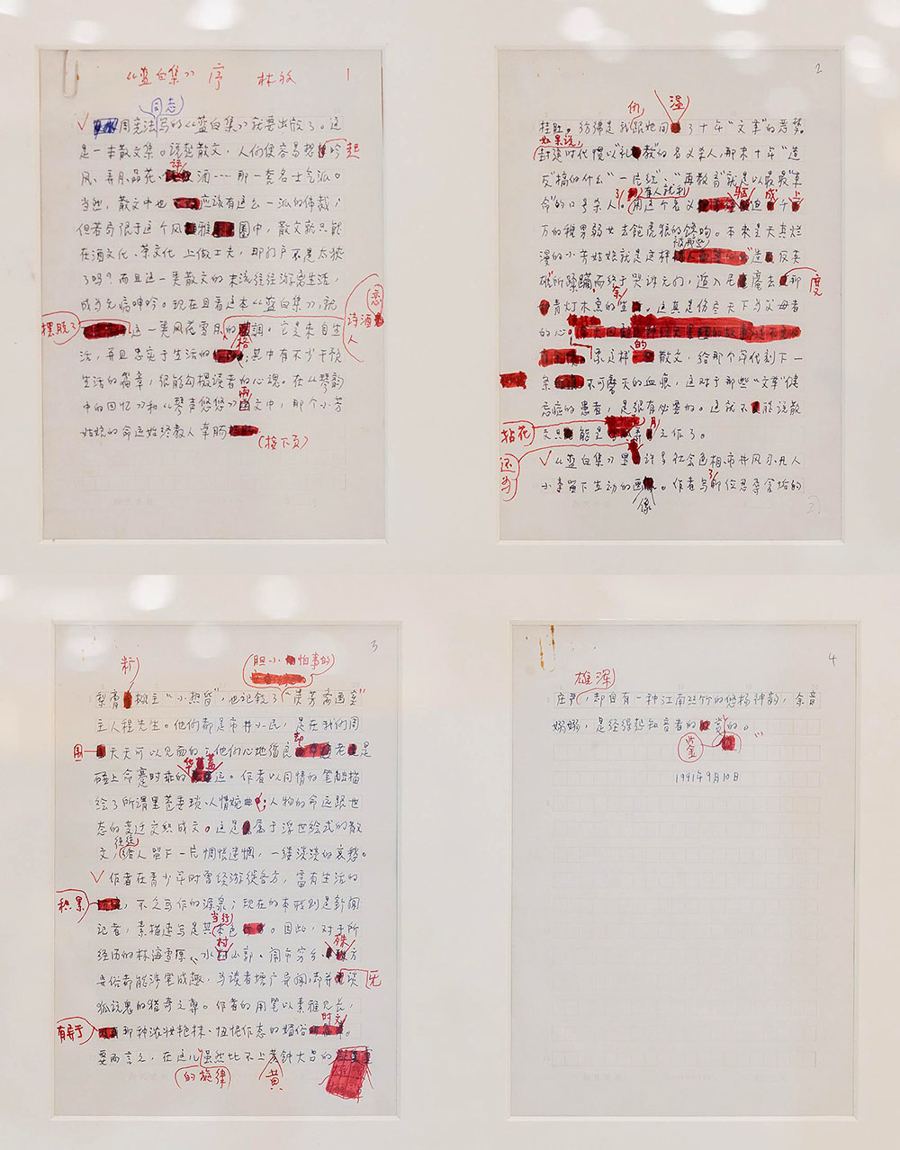 《蓝白集》序 林放 1
同志
周宪法写的《蓝白集》就要出版了。这
是一本散文集。说起散文，人们便容易想起吟
风、弄月、品花、评酒……那一套名士气派。
当然，散文中也应该有这么一派的体裁，
但若局限于这个风雅圈中，散文就只能
在酒文化、茶文化上做工夫，那门户不是太狭
了吗？而且这一类散文的末流往往游离生活，
成为无病呻吟。现在且看这本《蓝白集》，就
摆脱了这一类风花雪月的格调。它是来自生
诗酒
人
活，并且忠实于生活的；其中有不少干预
生活的篇章，很能勾摄读者的心魂。在《琴韵
中的回忆》和《琴声悠悠》两文中，那个小芳
姑娘的命运始终教人牵肠
(接下页)
2
挂肚。彷彿是我跟她同了十年“文革”的恶梦。
如果说，
封建时代惯以“礼教”的名义杀人，那末十年“造
反”搞的什么“一片红”、“再教育”就是以最最“革
命”的口号杀人。有人就利
用这个名义迫成千上
万的稚男弱女去饱虎狼的馋吻。本来是天真烂
漫的小芳姑娘就是这样被那些“造反英
雄”所蹂躏而终于哭诉无门，遁入尼庵去度那
青灯木鱼的余生。这真是伤尽天下为父母者
的心。
系这样的散文，给那个年代刻下一
条不可磨灭的血痕，这对于那些“文革”健
忘症的患者，是很有必要的。这就不能说散
文只能是拈花弄月之作了。
还为
《蓝白集》里许多社会色相、市井风习、凡人
小事留下生动的画像。作者写那位思孕拿掐的
3
断
胆小怕事的
梨膏摊主“小热昏”，也记叙了“庆芳斋画室”
主人程先生。他们都是市井小民，是在我们周
围天天可以见面的；他们心地善良却老是
碰上命蹇时乖的华盖运。作者以同情的笔触描
绘了所谓里巷委琐、人情婉曲；人物的命运跟世
态的变迁交织成文。这是属于浮世绘式的散
文，往往给人留下一片惆怅遗憾，一缕淡淡的哀愁。
作者在青少年时曾经游徙各方，富有生活的
积累，不乏写作的源泉；现在的本职则是新闻
记者，素描速写是其当行本色。因此，对于所
经历的林海雪原、水村山郭、闹市穷乡、殊方
异俗都能涉笔成趣，为读者增广见闻，却并无谈
狐说鬼的猎奇之弊。作者的用笔以素雅见长，
有异于那种浓妆艳抹、扭怩作态的媚俗时文。
要而言之，在这儿虽然比不上黄钟大吕的
的旋律
4
雄浑
庄严，却自有一种江南丝竹的悠扬神韵，余音
嫋嫋，是经得起知音者的的。
1991年9月10日